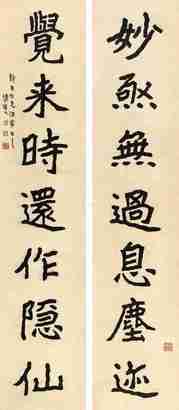 妙處無過息塵迹
覺来時還作隐仙